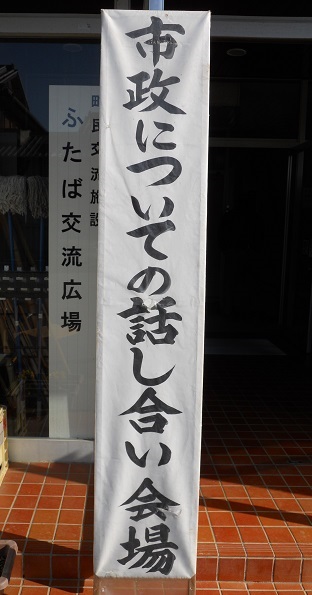 市政についての話し合い会場
町民交流施設
ふたば交流広場